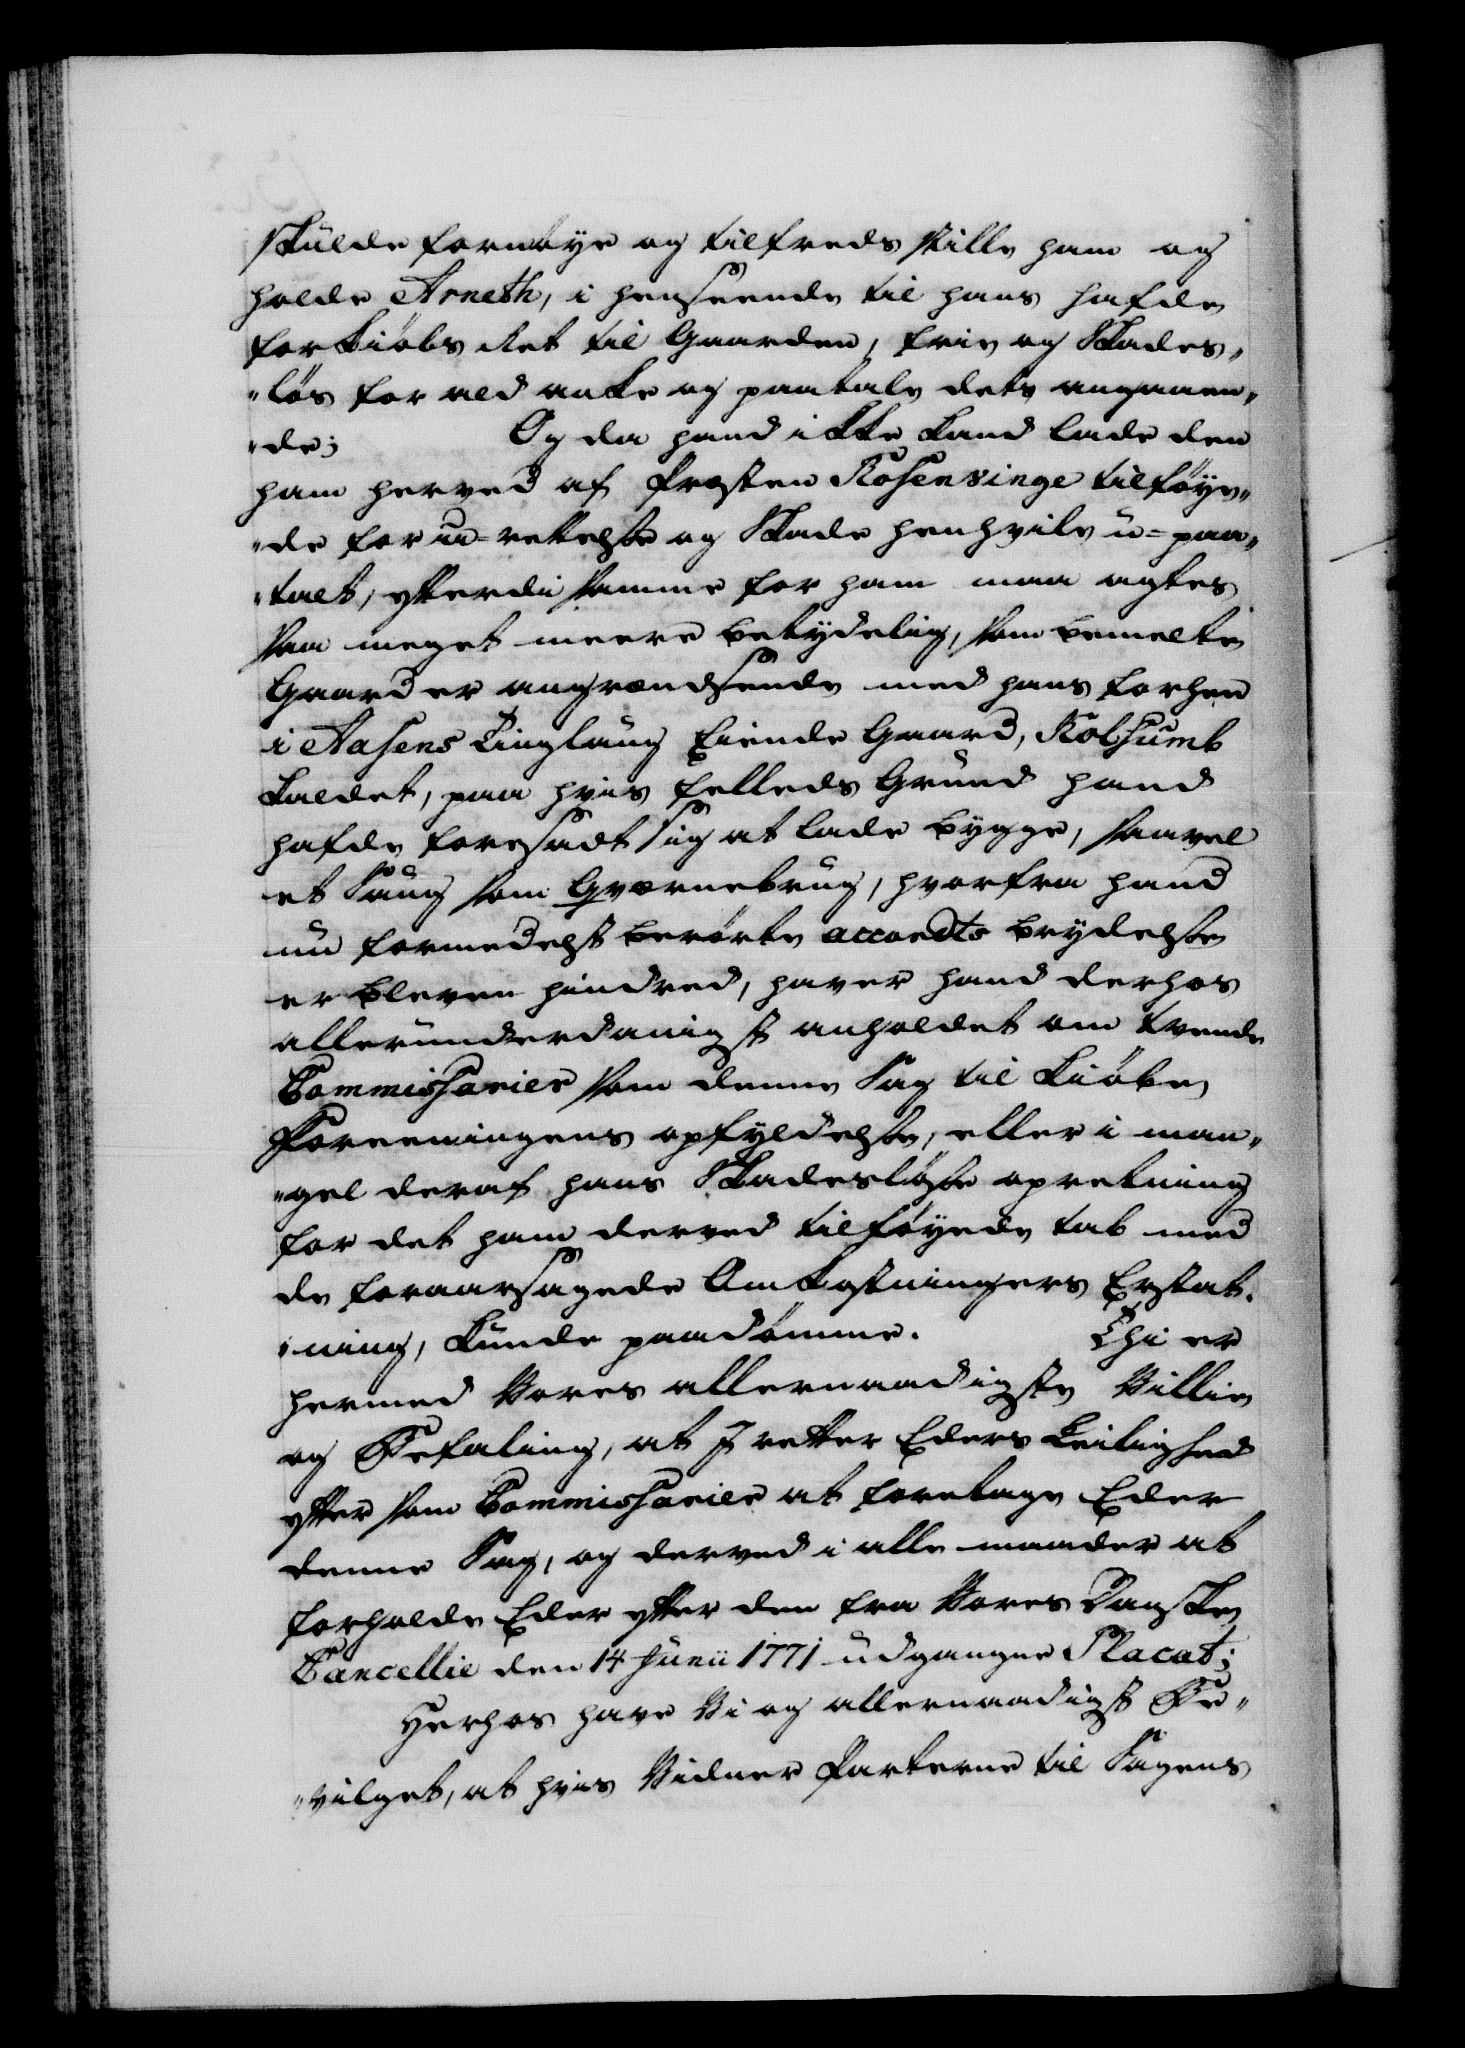 skulde fornøye og tilfreds stille ham og
holde Arneth, i henseende til hans hafde
forkiøbs Ret til Gaarden, frie og Skades„
„løs for ald anke og paatale dets angaaen„
„de; Og da hand ikke kand lade den
ham herved af Præsten Rosenvinge tilføye„
„de for u-rettelse og Skade henhvile u-paa„
„talt, efterdi samme for ham maa agtes
saa meget meere betydelig, som bemelte
Gaard er angrændsende med hans forhen
i Aasens Tinglaug Eiende Gaard, Kolsumb
kaldet, paa hvis felleds Grund hand
hafde foresadt sig at lade bygge, saavel
et Saug som Qværnebrug, hvorfra hand
nu formedelst berørte accordts brydelse
er bleven hindred, haver hand derhos
allerunderdanigst anholdet om tvende
Commissarier som denne Sag til kiøbe
Foreeningens opfyldelse, eller i man„
„gel deraf hans Skadesløse opretning
for det ham derved tilføyede tab med
de foraarsagede Omkostningers Erstat„
„ning, kunde paadømme. Thi er
hermed Vores allernaadigste Villie
og Befaling, at I retter Eders Leilighed
efter som Commissarier at foretage Eder
denne Sag, og derved i alle maader at
forholde Eder efter den fra Vores Danske
Cancellie den 14 Junii 1771 udgangne Placat;
Herhos have Vi og allernaadigst Be„
„vilget, at hvis Vidner Parterne til Sagens